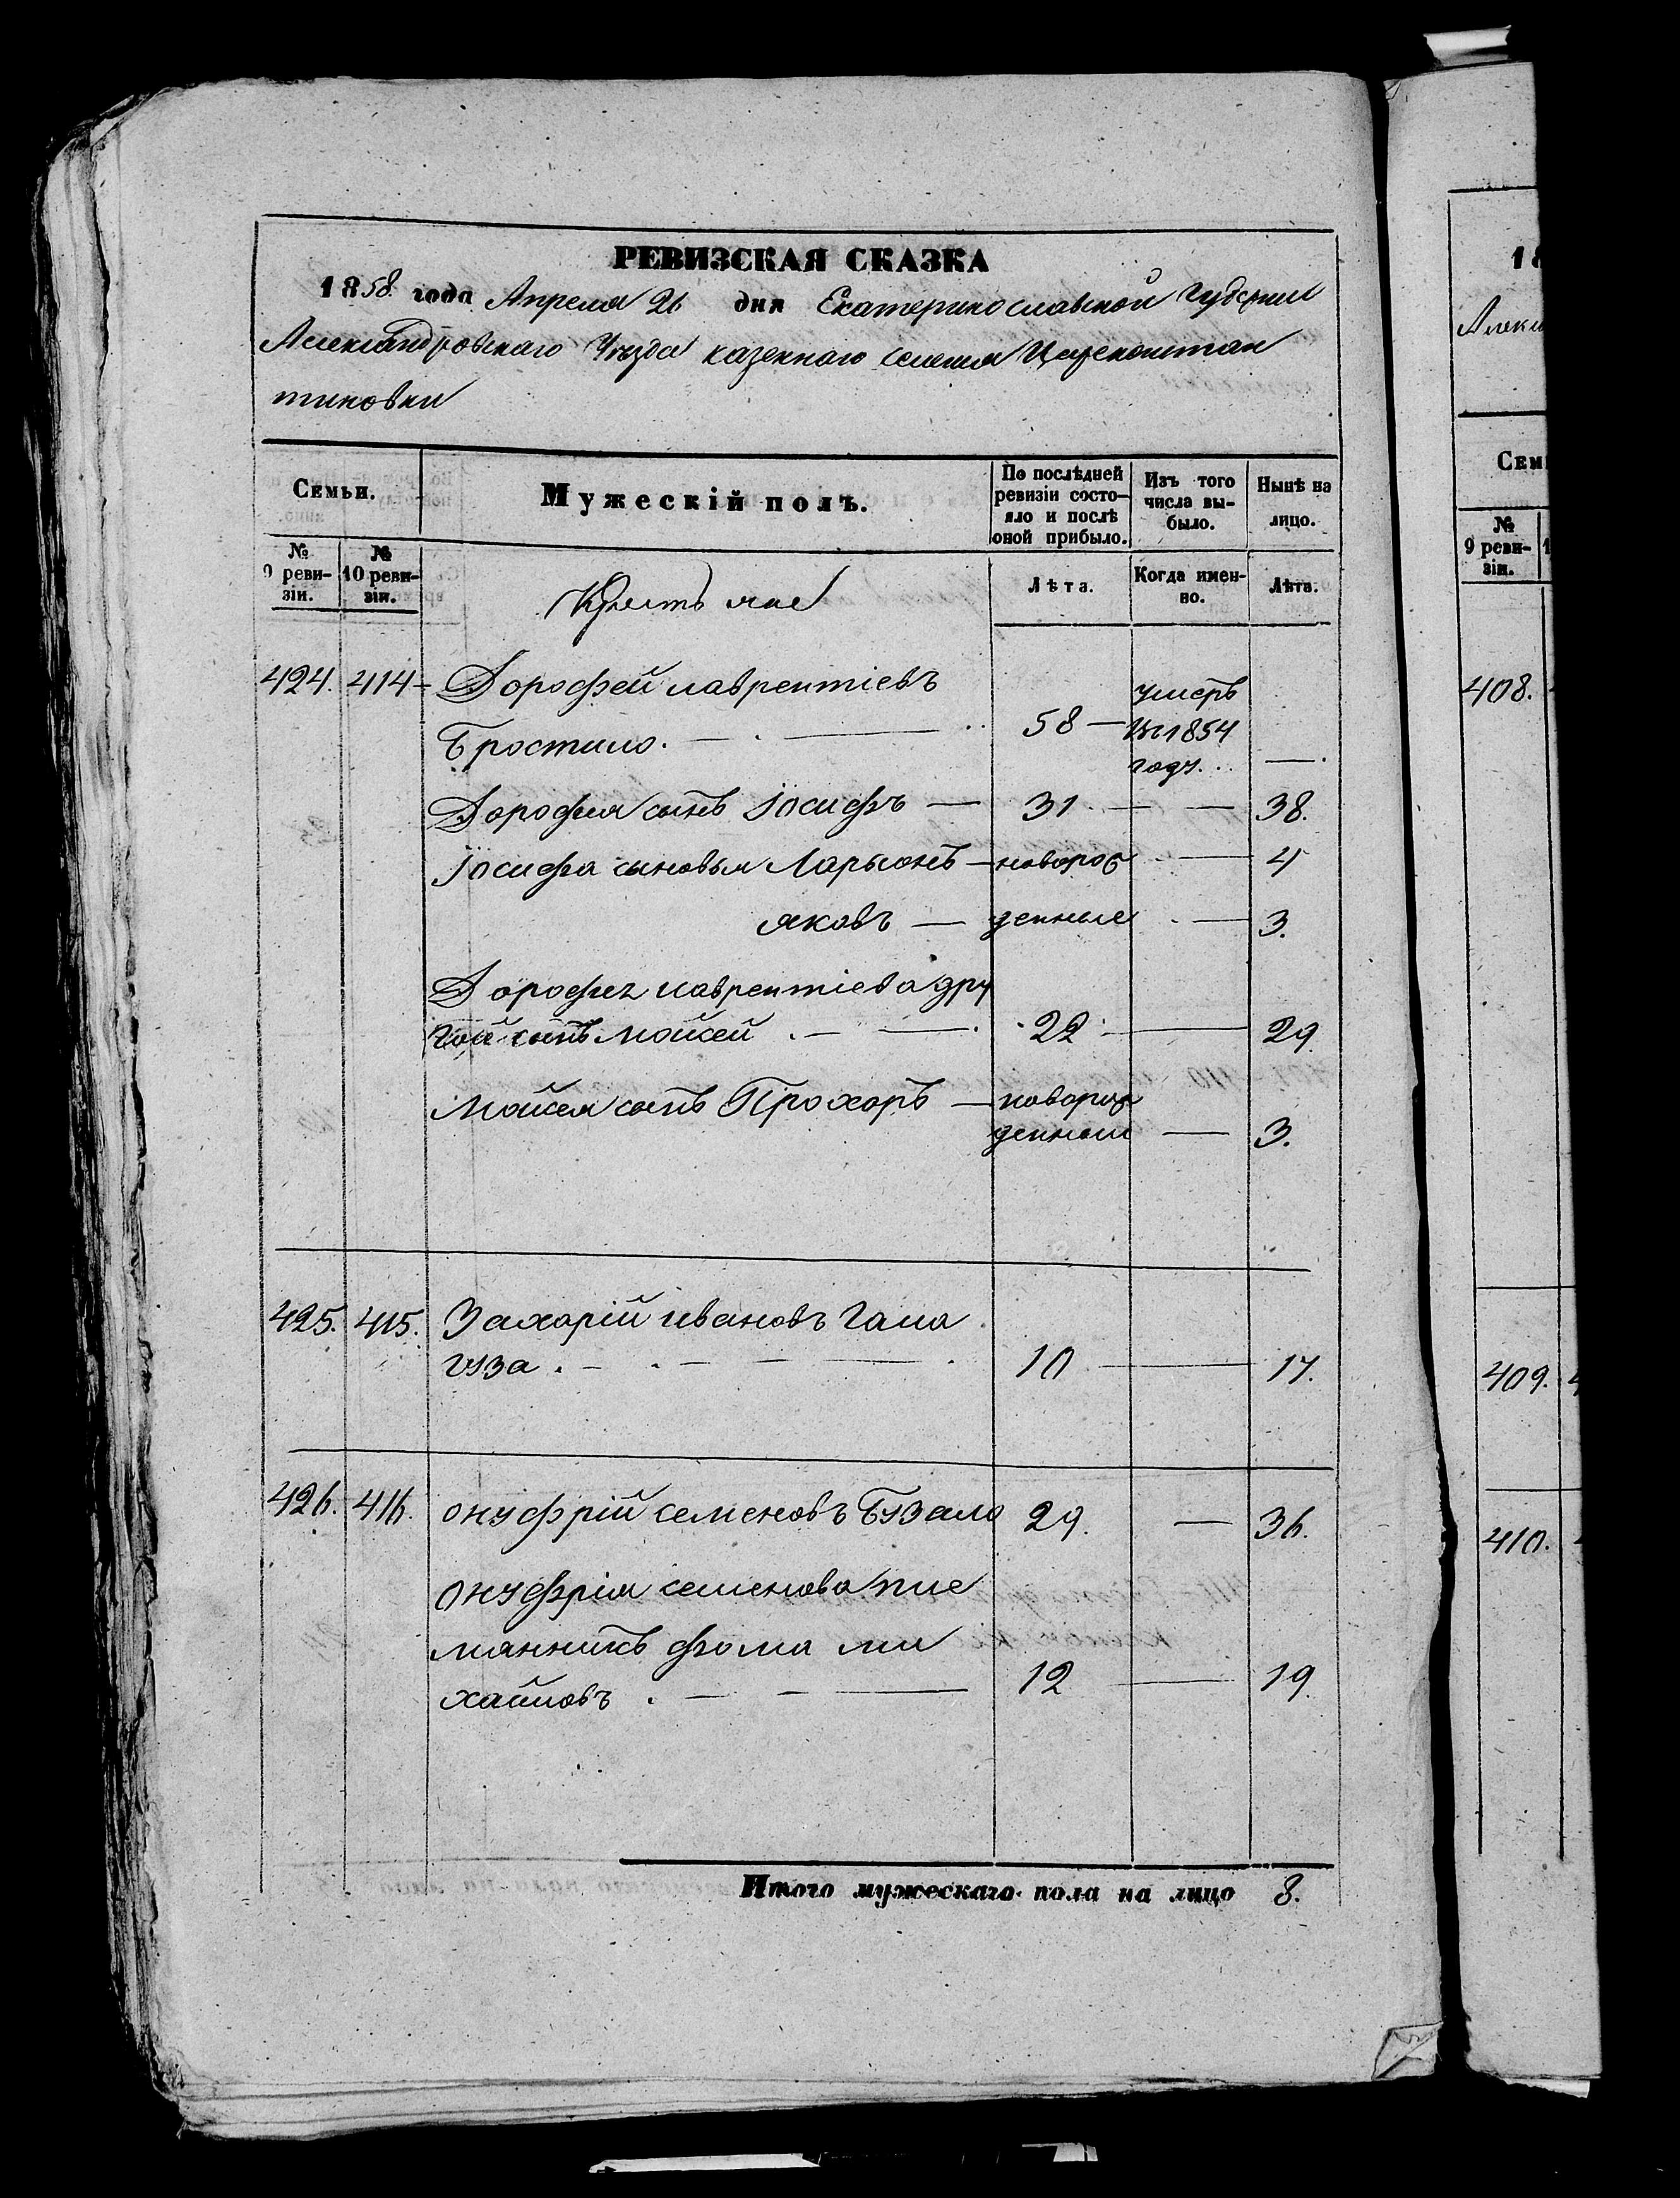 РЕВИЗСКАЯ СКАЗКА
1858. года Апреля 26 дня Екатеринославской Губерніи
Александровскаго Уѣзда казеннаго селенія Цареконстан
тиновки
Семьи.
Мужескій полъ.
По послѣдней ревизіи состо-
яло и послѣ
оной прибыло.
Изъ того
числа вы-
было.
Нынѣ на
лицо.
№
9 реви-
зіи.
№
10 реви-
зіи.
Крестьяне
Лѣта.
Когда имен-
но.
Лѣта.
424. 414 Дорофей лаврентіевъ
умеръ
58 — въ 1854
году.
Дорофея сынъ Іосифъ — 31. — — 38.
Іосифа сыновья Ларіонъ — новорож — 4
яковъ — денные — 3.
Дорофея лаврентіева дру
гой сынъ мойсей 22 — 29.
мойсея сынъ Прохоръ — новорож
денный — 3.
425. 415. Захарій ивановъ Гала
гуза 10 — 17.
426. 416. онуфрій семеновъ Бузало 29. — 36.
онуфрія семенова пле
манникъ фома ми
хайловъ 12 — 19.
Итого мужескаго пола на лицо 8.
18
Алекс
Сем
№
9 реви-
зіи.
408.
409.
410.